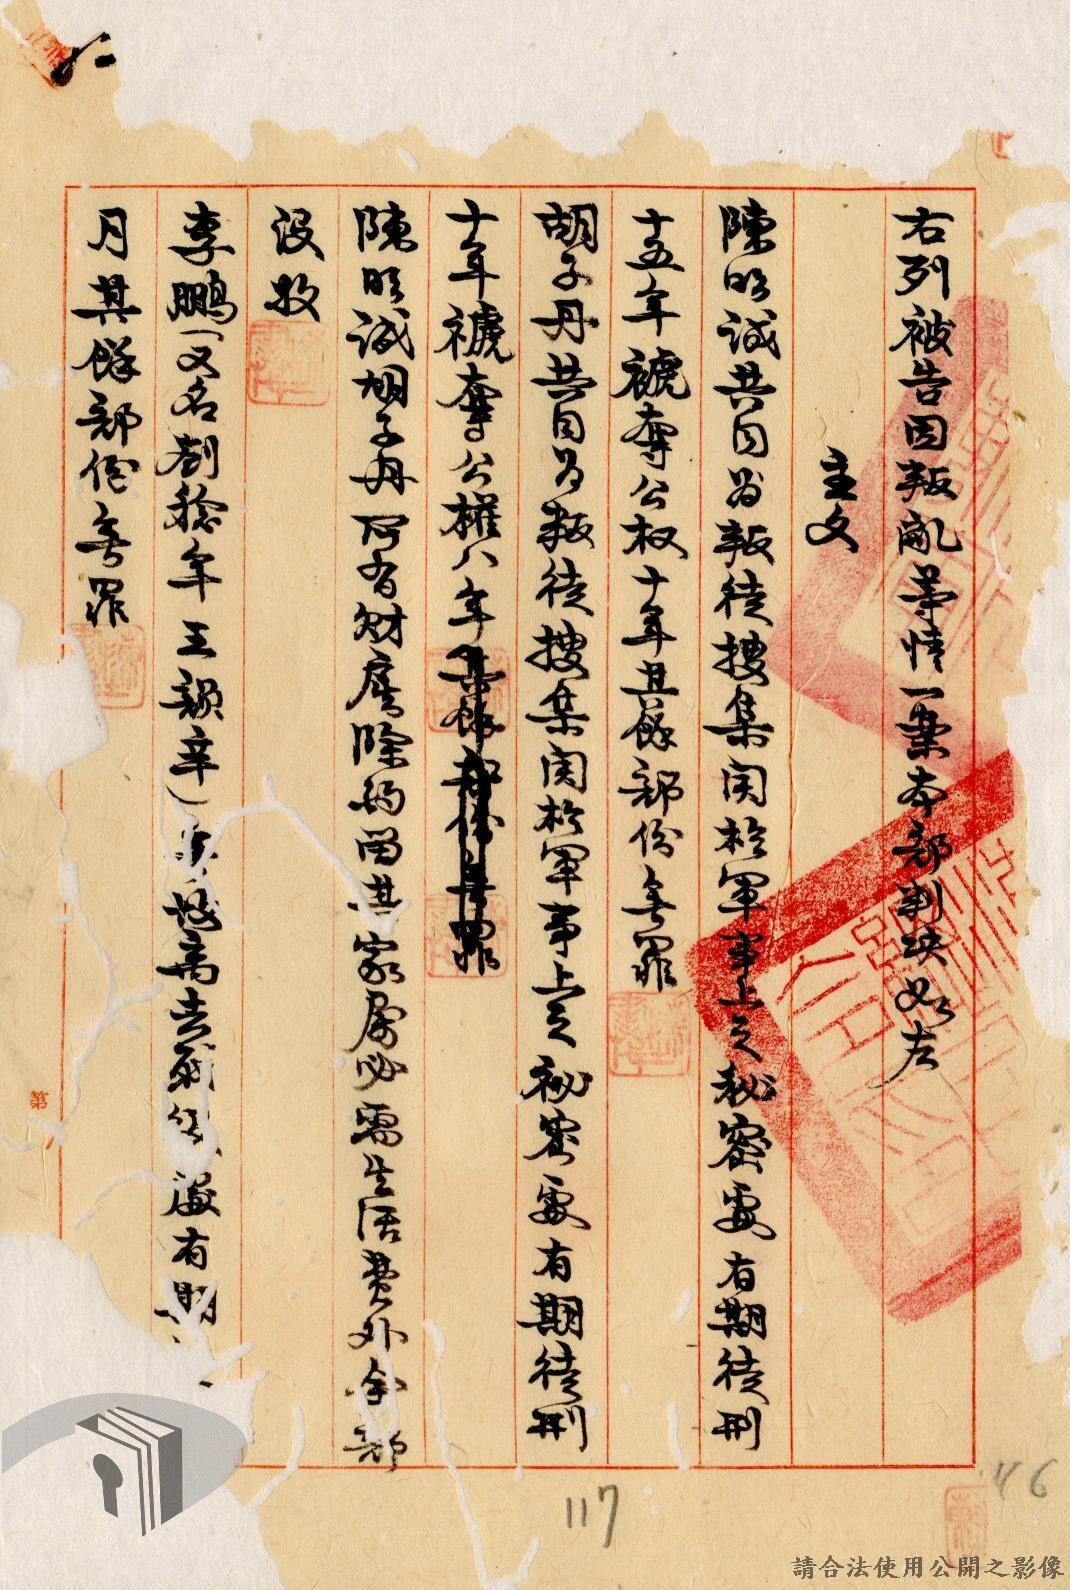 右列被告因叛亂等情一案本部判決如左
主文
陳明誠共同為叛徒搜集関於軍事上之秘密處有期徒刑
十五年褫奪公权十年其餘部份無罪
胡子丹共同為叛徒搜集関於軍事上之秘密處有期徒刑
十年褫奪公權八年其餘部份無罪
陳明誠胡子丹所有財產除酌留其家屬必需生活費外全部
没收
李鵬(又名劉 年王 辛) 有期
月其餘部份無罪
第
117
46
請合法使用公開之影像